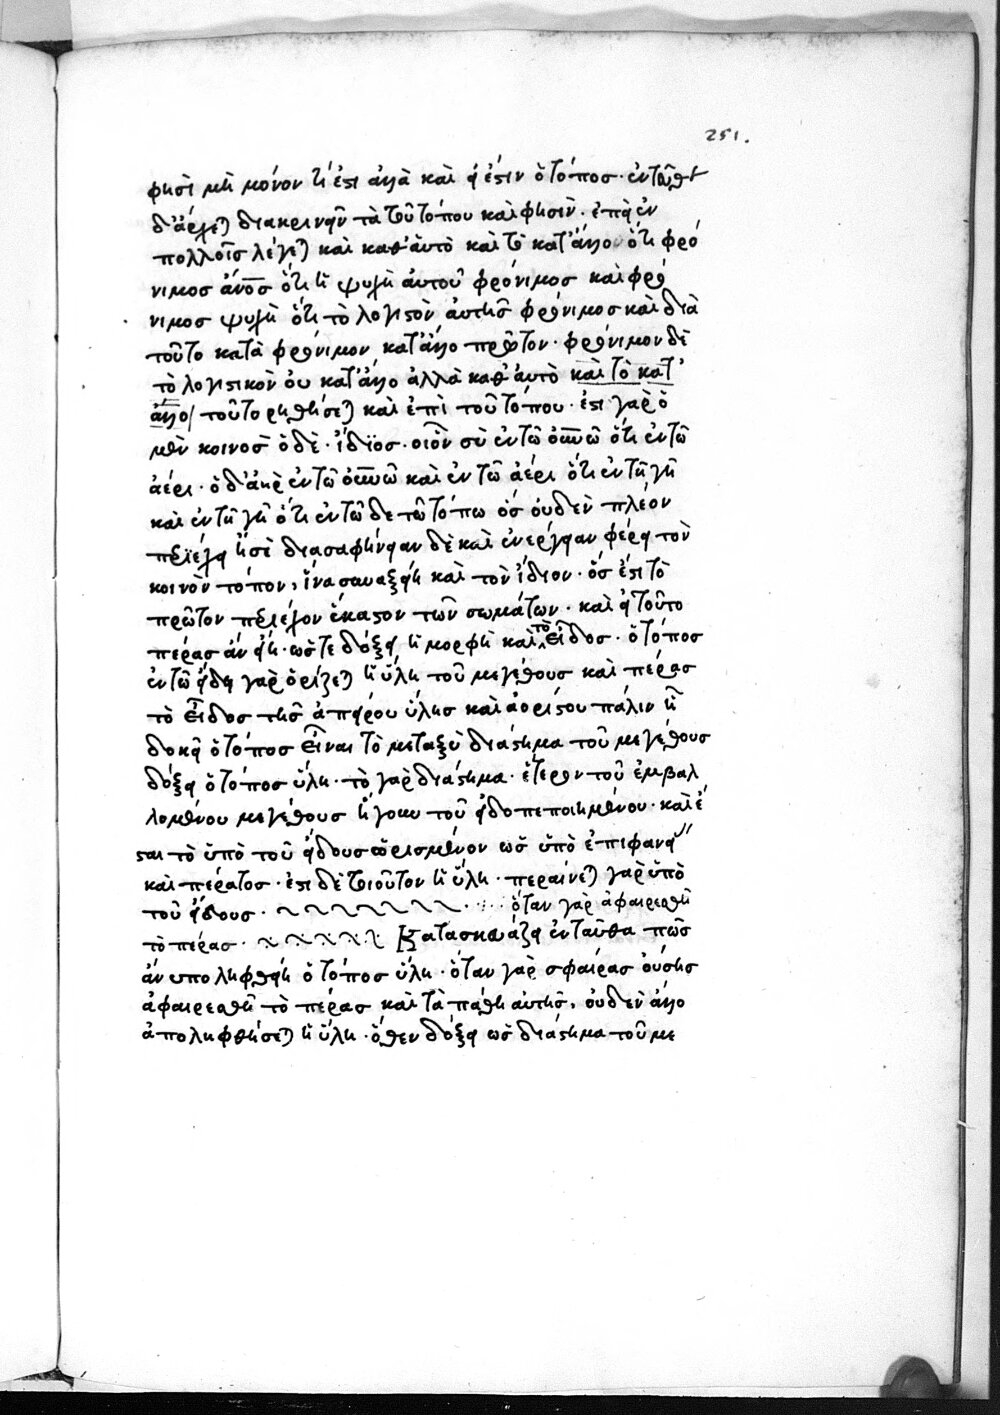 251.
φησὶ μὴ μόνον τί ἐστι ἀλλὰ καὶ εἰ ἔστιν ὁ τόπος· ἐνταῦθα
δ' ἄρχεται διακρινεῖν τὰ τοῦ τόπου καὶ φησίν· ἐπεὶ ἐν
πολλοῖς λέγεται καὶ καθ' αὑτὸ καὶ τὸ κατ' ἄλλο ὅτι φρό
νιμος ἄνος ὅτι ἡ ψυχὴ αὐτοῦ φρόνιμος καὶ φρό
νιμος ψυχὴ ὅτι τὸ λογιστὸν αὐτῆς φρόνιμος καὶ διὰ
τοῦτο κατὰ φρόνιμον κατ' ἄλλο πρῶτον· φρόνιμον δὲ
τὸ λογιστικὸν οὐ κατ' ἄλλο ἀλλὰ καθ' αὑτὸ καὶ τὸ κατ'
ἄλλο τοῦτο ῥηθήσεται καὶ ἐπὶ τοῦ τόπου· ἔστι γὰρ ὁ
μὲν κοινὸς ὁ δὲ· ἴδϊος· οἷον σὺ ἐν τῶ οὐνῶ ὅτι ἐν τῶ
ἀέρι· ὁ δ' ἀὴρ ἐν τῶ οὐνῶ καὶ ἐν τῶ ἀέρι ὅτι ἐν τῇ γῇ
καὶ ἐν τῇ γῇ ὅτι ἐν τῶδε τῶ τόπω ὃς οὐδὲν πλέον
περϊέχει ἢ σὲ διασαφήνειαν δὲ καὶ ἐνέργειαν φέρει τὸν
κοινὸν τόπον, ἵνα συναχθῇ καὶ τὸν ἴδιον· ὅς ἐστι τὸ
πρῶτον περιέχον ἕκαστον τῶν σωμάτων· καὶ εἰ τοῦτο
πέρας ἂν εἴη· ὥστε δόξει ἡ μορφὴ καὶ τὸ εἶδος· ὁ τόπος
ἐν τῶ εἴδει γὰρ ὁρίζεται ἡ ὕλη τοῦ μεγέθους καὶ πέρας
τὸ εἶδος τῆς ἀπείρου ὕλης καὶ ἀορίστου πάλιν ᾗ
δοκεῖ ὁ τόπος εἶναι τὸ μεταξὺ διάστημα τοῦ μεγέθους
δόξει ὁ τόπος ὕλη· τὸ γὰρ διάστημα· ἕτερον τοῦ ἐμβαλ
λομένου μεγέθους ἤγουν τοῦ εἰδοπεποιημένου· καὶ ἔ
σται τὸ ὑπὸ τοῦ εἴδους ὡρισμένον ὡς ὑπὸ ἐπιφανεί
καὶ πέρατος· ἔστι δὲ τοιοῦτον ἡ ὕλη· περαίνεται γὰρ ὑπὸ
τοῦ εἴδους· ὅταν γὰρ ἀφαιρεθῇ
τὸ πέρας· Κατασκευάζει ἐνταῦθα πῶς
ἂν υποληφθείη ὁ τόπος ὕλη· ὅταν γὰρ σφαίρας οὔσης
ἀφαιρεθῇ τὸ πέρας καὶ τὰ πάθη αὐτῆς, οὐδὲν ἄλλο
ἀπολειφθήσεται ἡ ὕλη· ὅθεν δόξει ὡς διάστημα τοῦ με